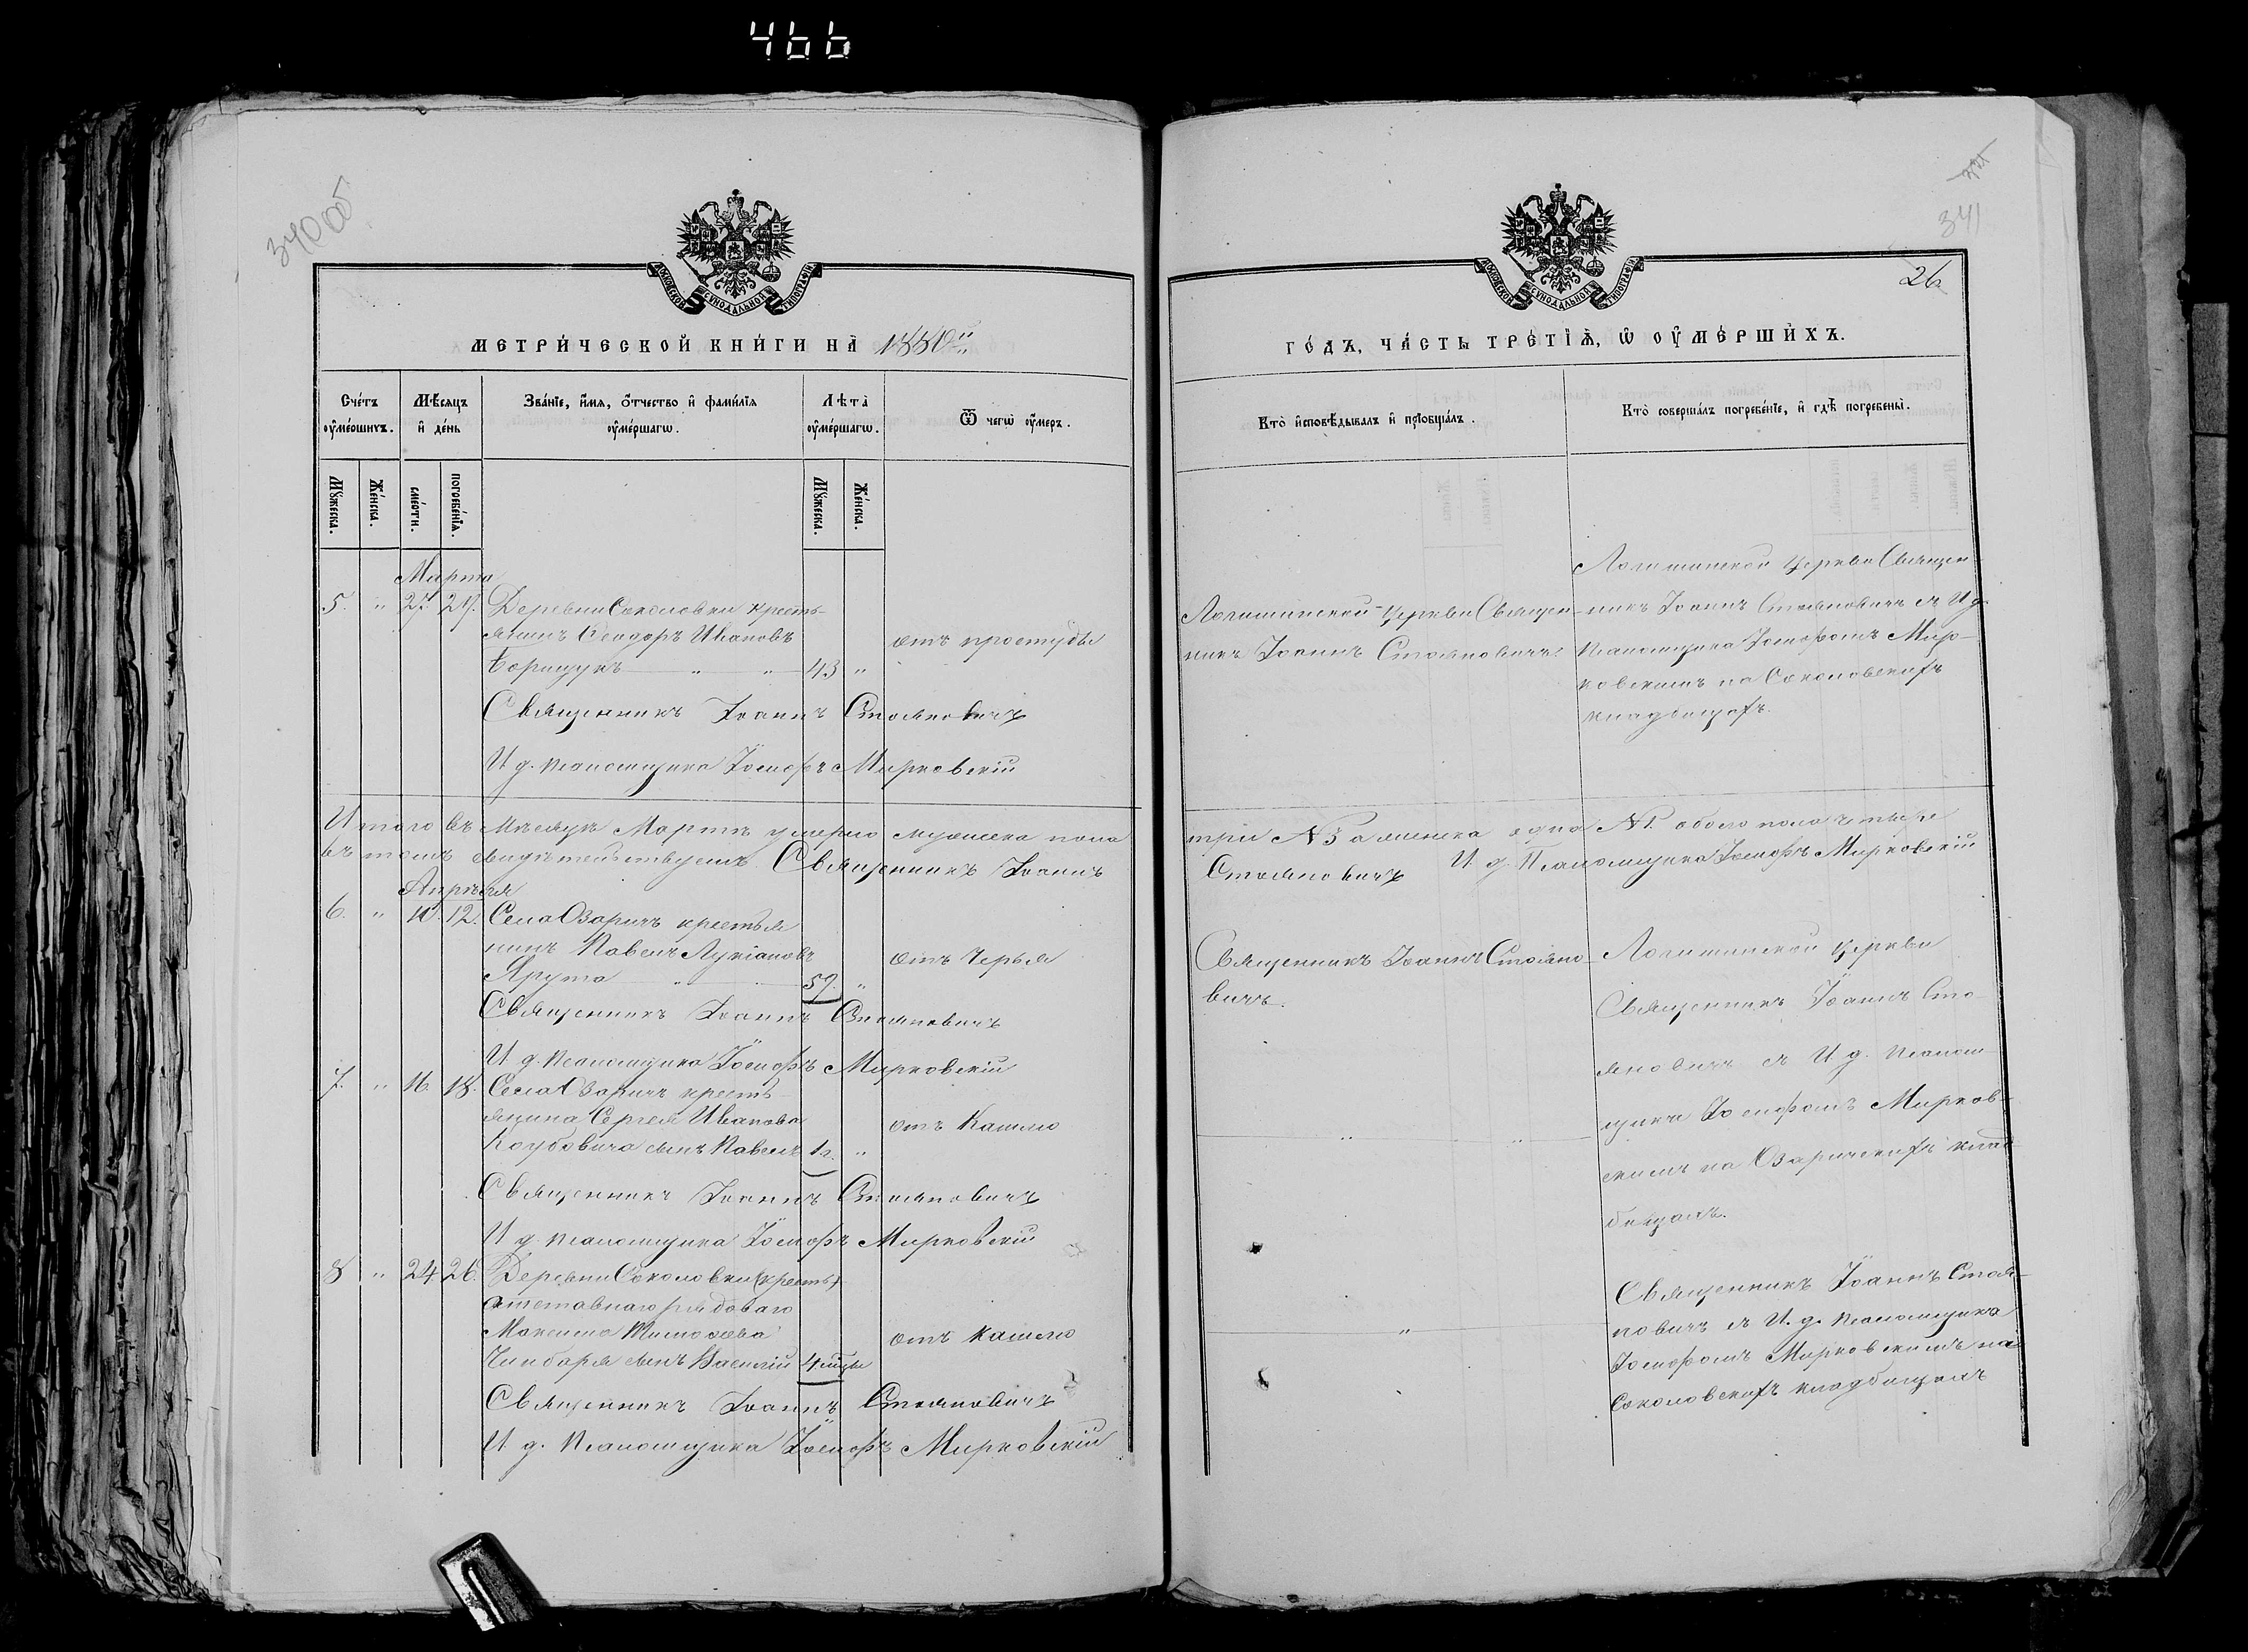 466
340 об
МЕТРИ́ЧЕСКОЙ КНИ́ГИ НА̀ 1880й
Сче́тъ оу҆ме́ршихъ.
Мѣ́сяцъ и҆ де́нь
Зва́нїе, и҆́мѧ, ѻ҆́тчество и҆ фами́лїѧ оу҆ме́ршагѡ.
Лѣ́та̀ оу҆ме́ршагѡ.
Ѿ чегѡ̀ оу҆́меръ.
Мꙋ́жеска.
Же́нска.
сме́рти.
погребе́нїѧ.
Мꙋ́жеска.
Же́нска.
Марта
5. " 27. 29. Деревни Соколовки кресть-
янинъ Ѳеодоръ Ивановъ отъ простуды
Борищукъ " " 43 "
Священникъ Іоаннъ Стояновичъ
И д. псаломщика Іосифъ Мирковскій
Итого въ мѣсяцѣ Мартѣ умерло мужеска пола
въ томъ свидѣтельствуемъ Священникъ Іоаннъ
Апрѣля
6. " 10. 12. Села Озаричъ крестья
нинъ Павелъ Лукіановъ отъ Черья
Ярута " 59. "
Священникъ Іоаннъ Стояновичъ
И д. псаломщика Іосифъ Мирковскій
7. " 16. 18. Села Озаричъ кресть-
янина Сергея Иванова отъ Кашлю
Коубовича сынъ Павелъ 1г. "
Священникъ Іоаннъ Стояновичъ
И д. псаломщика Іосифъ Мирковскій
8 " 24 26. Деревни Соколовки (кресть)
отставнаго рядоваго
Максима Тимоѳева отъ кашлю
Чинбаря сынъ Василій 4 мцы
Священникъ Іоаннъ Стояновичъ
И д. псаломщика Іосифъ Мирковскій
341
26
ГО́ДЪ, ЧА́СТЬ ТРЕ́ТЇѦ, Ѡ҆ ОУ҆МЕ́РШИХЪ.
Кто̀ и҆сповѣ́дывалъ и҆ прїобща́лъ.
Кто̀ соверша́лъ погребе́нїе, и҆ гдѣ̀ погребены̀.
Логишинской церкви Священ
Логишинской церкви Священ- никъ Іоаннъ Стояновичъ съ И д.
никъ Іоаннъ Стояновичъ. псаломщика Іосифомъ Мир-
ковскимъ на Соколовскихъ
кладбищахъ.
три №3 а женска одна №1. обоего пола четыре
Стояновичъ И. д. Псаломщика Іосифъ Мирковскій
Священникъ Іоаннъ Стояно- Логишинской церкви
вичъ. Священникъ Іоаннъ Сто-
яновичъ съ И д. псалом-
щика Іосифомъ Мирков-
" " скимъ на Озаричскихъ клад-
бищахъ.
Священникъ Іоаннъ Стоя-
новичъ съ И. д. псаломщика
" Іосифомъ Мирковскимъ на
Соколовскихъ кладбищахъ